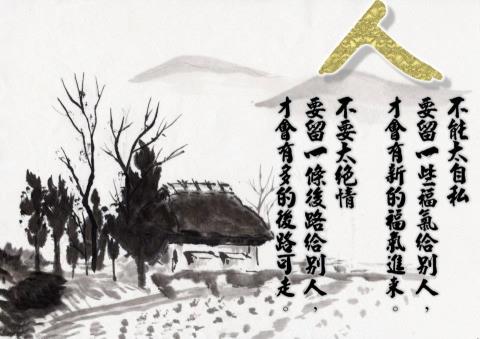 人
不能太自私
要留一些福氣给别人，
才會有新的福氣進來。
不要太絕情
要留一條後路给别人，
才會有多的後路可走。